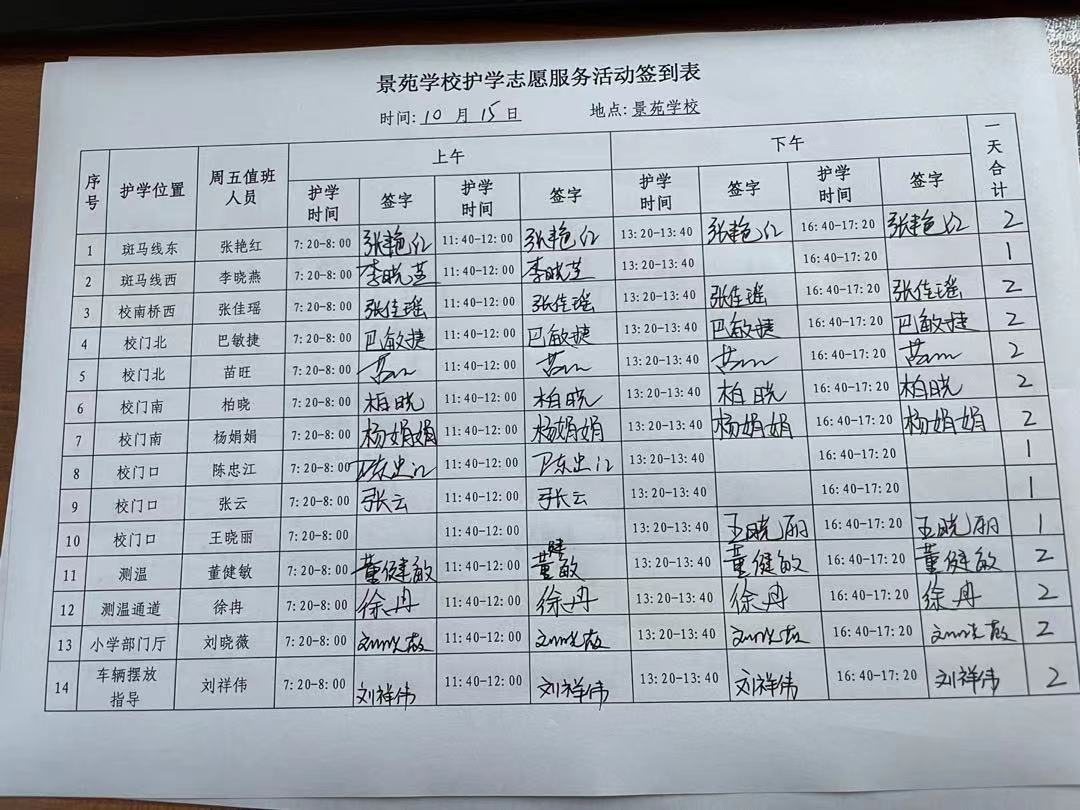 景苑学校护学志愿服务活动签到表
时间: 10 月 15 日 地点: 景苑学校
序号 护学位置 周五值班人员 上午 下午 一天合计
护学时间 签字 护学时间 签字 护学时间 签字 护学时间 签字
1 斑马线东 张艳红 7:20-8:00 张艳红 11:40-12:00 张艳红 13:20-13:40 张艳红 16:40-17:20 张艳红 2
2 斑马线西 李晓燕 7:20-8:00 李晓燕 11:40-12:00 李晓燕 13:20-13:40 16:40-17:20 1
3 校南桥西 张佳瑶 7:20-8:00 张佳瑶 11:40-12:00 张佳瑶 13:20-13:40 张佳瑶 16:40-17:20 张佳瑶 2
4 校门北 巴敏捷 7:20-8:00 巴敏捷 11:40-12:00 巴敏捷 13:20-13:40 巴敏捷 16:40-17:20 巴敏捷 2
5 校门北 苗旺 7:20-8:00 苗 11:40-12:00 苗 13:20-13:40 苗 16:40-17:20 苗 2
6 校门南 柏晓 7:20-8:00 柏晓 11:40-12:00 柏晓 13:20-13:40 柏晓 16:40-17:20 柏晓 2
7 校门南 杨娟娟 7:20-8:00 杨娟娟 11:40-12:00 杨娟娟 13:20-13:40 杨娟娟 16:40-17:20 杨娟娟 2
8 校门口 陈忠江 7:20-8:00 陈忠江 11:40-12:00 陈忠江 13:20-13:40 16:40-17:20 1
9 校门口 张云 7:20-8:00 张云 11:40-12:00 张云 13:20-13:40 16:40-17:20 1
10 校门口 王晓丽 7:20-8:00 11:40-12:00 13:20-13:40 王晓丽 16:40-17:20 王晓丽 1
11 测温 董健敏 7:20-8:00 董健敏 11:40-12:00 董健敏 13:20-13:40 董健敏 16:40-17:20 董健敏 2
12 测温通道 徐冉 7:20-8:00 徐冉 11:40-12:00 徐冉 13:20-13:40 徐冉 16:40-17:20 徐冉 2
13 小学部门厅 刘晓薇 7:20-8:00 刘晓薇 11:40-12:00 刘晓薇 13:20-13:40 刘晓薇 16:40-17:20 刘晓薇 2
14 车辆摆放指导 刘祥伟 7:20-8:00 刘祥伟 11:40-12:00 刘祥伟 13:20-13:40 刘祥伟 16:40-17:20 刘祥伟 2